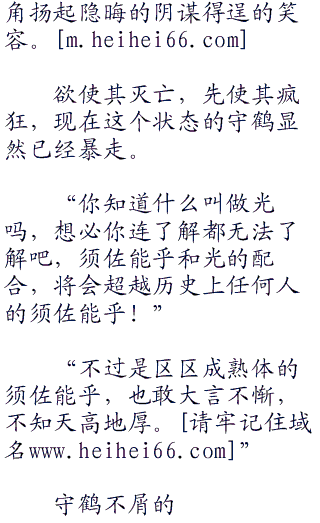 角扬起隐晦的阴谋得逞的笑
容。[m.heihei66.com]
欲使其灭亡，先使其疯
狂，现在这个状态的守鹤显
然已经暴走。
“你知道什么叫做光
吗，想必你连了解都无法了
解吧，须佐能乎和光的配
合，将会超越历史上任何人
的须佐能乎！”
“不过是区区成熟体的
须佐能乎，也敢大言不惭，
不知天高地厚。[请牢记住域
名www.heihei66.com]”
守鹤不屑的